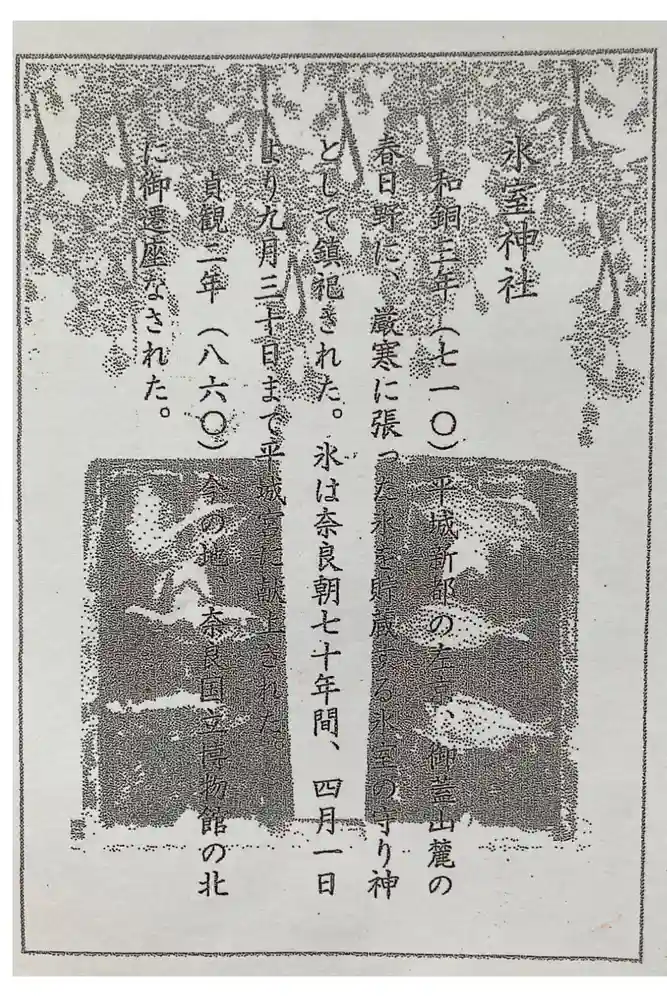 氷室神社
和銅三年（七一〇）平城新都の左京、御蓋山麓の
春日野に、厳寒に張った氷を貯蔵する氷室の守り神
として鎮祀された。氷は奈良朝七十年間、四月一日
より九月三十日まで平城宮に献上された。
貞観二年（八六〇）今の地、奈良国立博物館の北
に御遷座なされた。